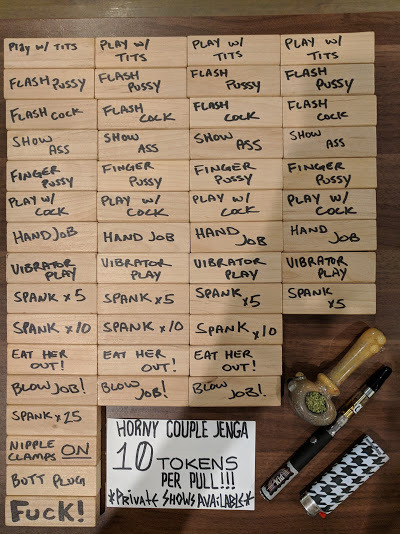 Play w/ TITS
PLAY w/
TITS
PLAY w/
TITS
PLAY w/
TITS
FLASH PUSSY
FLASH
PUSSY
FLASH
PUSSY
FLASH
PUSSY
FLASH COCK
FLASH
COCK
FLASH
COCK
FLASH
COCK
SHOW
ASS
SHOW
ASS
SHOW
ASS
SHOW
ASS
FINGER
PUSSY
FINGER
PUSSY
FINGER
PUSSY
FINGER
PUSSY
PLAY w/
COCK
PLAY w/
COCK
PLAY w/
COCK
PLAY w/
COCK
HAND JOB
HAND JOB
HAND
JOB
HAND
JOB
VIBRATOR
PLAY
VIBRATOR
PLAY
VIBRATOR
PLAY
VIBRATOR
PLAY
SPANK x5
SPANK x5
SPANK
x5
SPANK
x5
SPANK x10
SPANK x10
SPANK x10
EAT HER
OUT!
EAT HER
OUT!
EAT HER
OUT!
BLOW JOB!
BLOW
JOB!
BLOW
JOB!
SPANK x25
NIPPLE
CLAMPS ON
BUTT PLUG
FUCK!
HORNY COUPLE JENGA
10 TOKENS
PER PULL!!!
*Private SHOWS AVAILABLE*